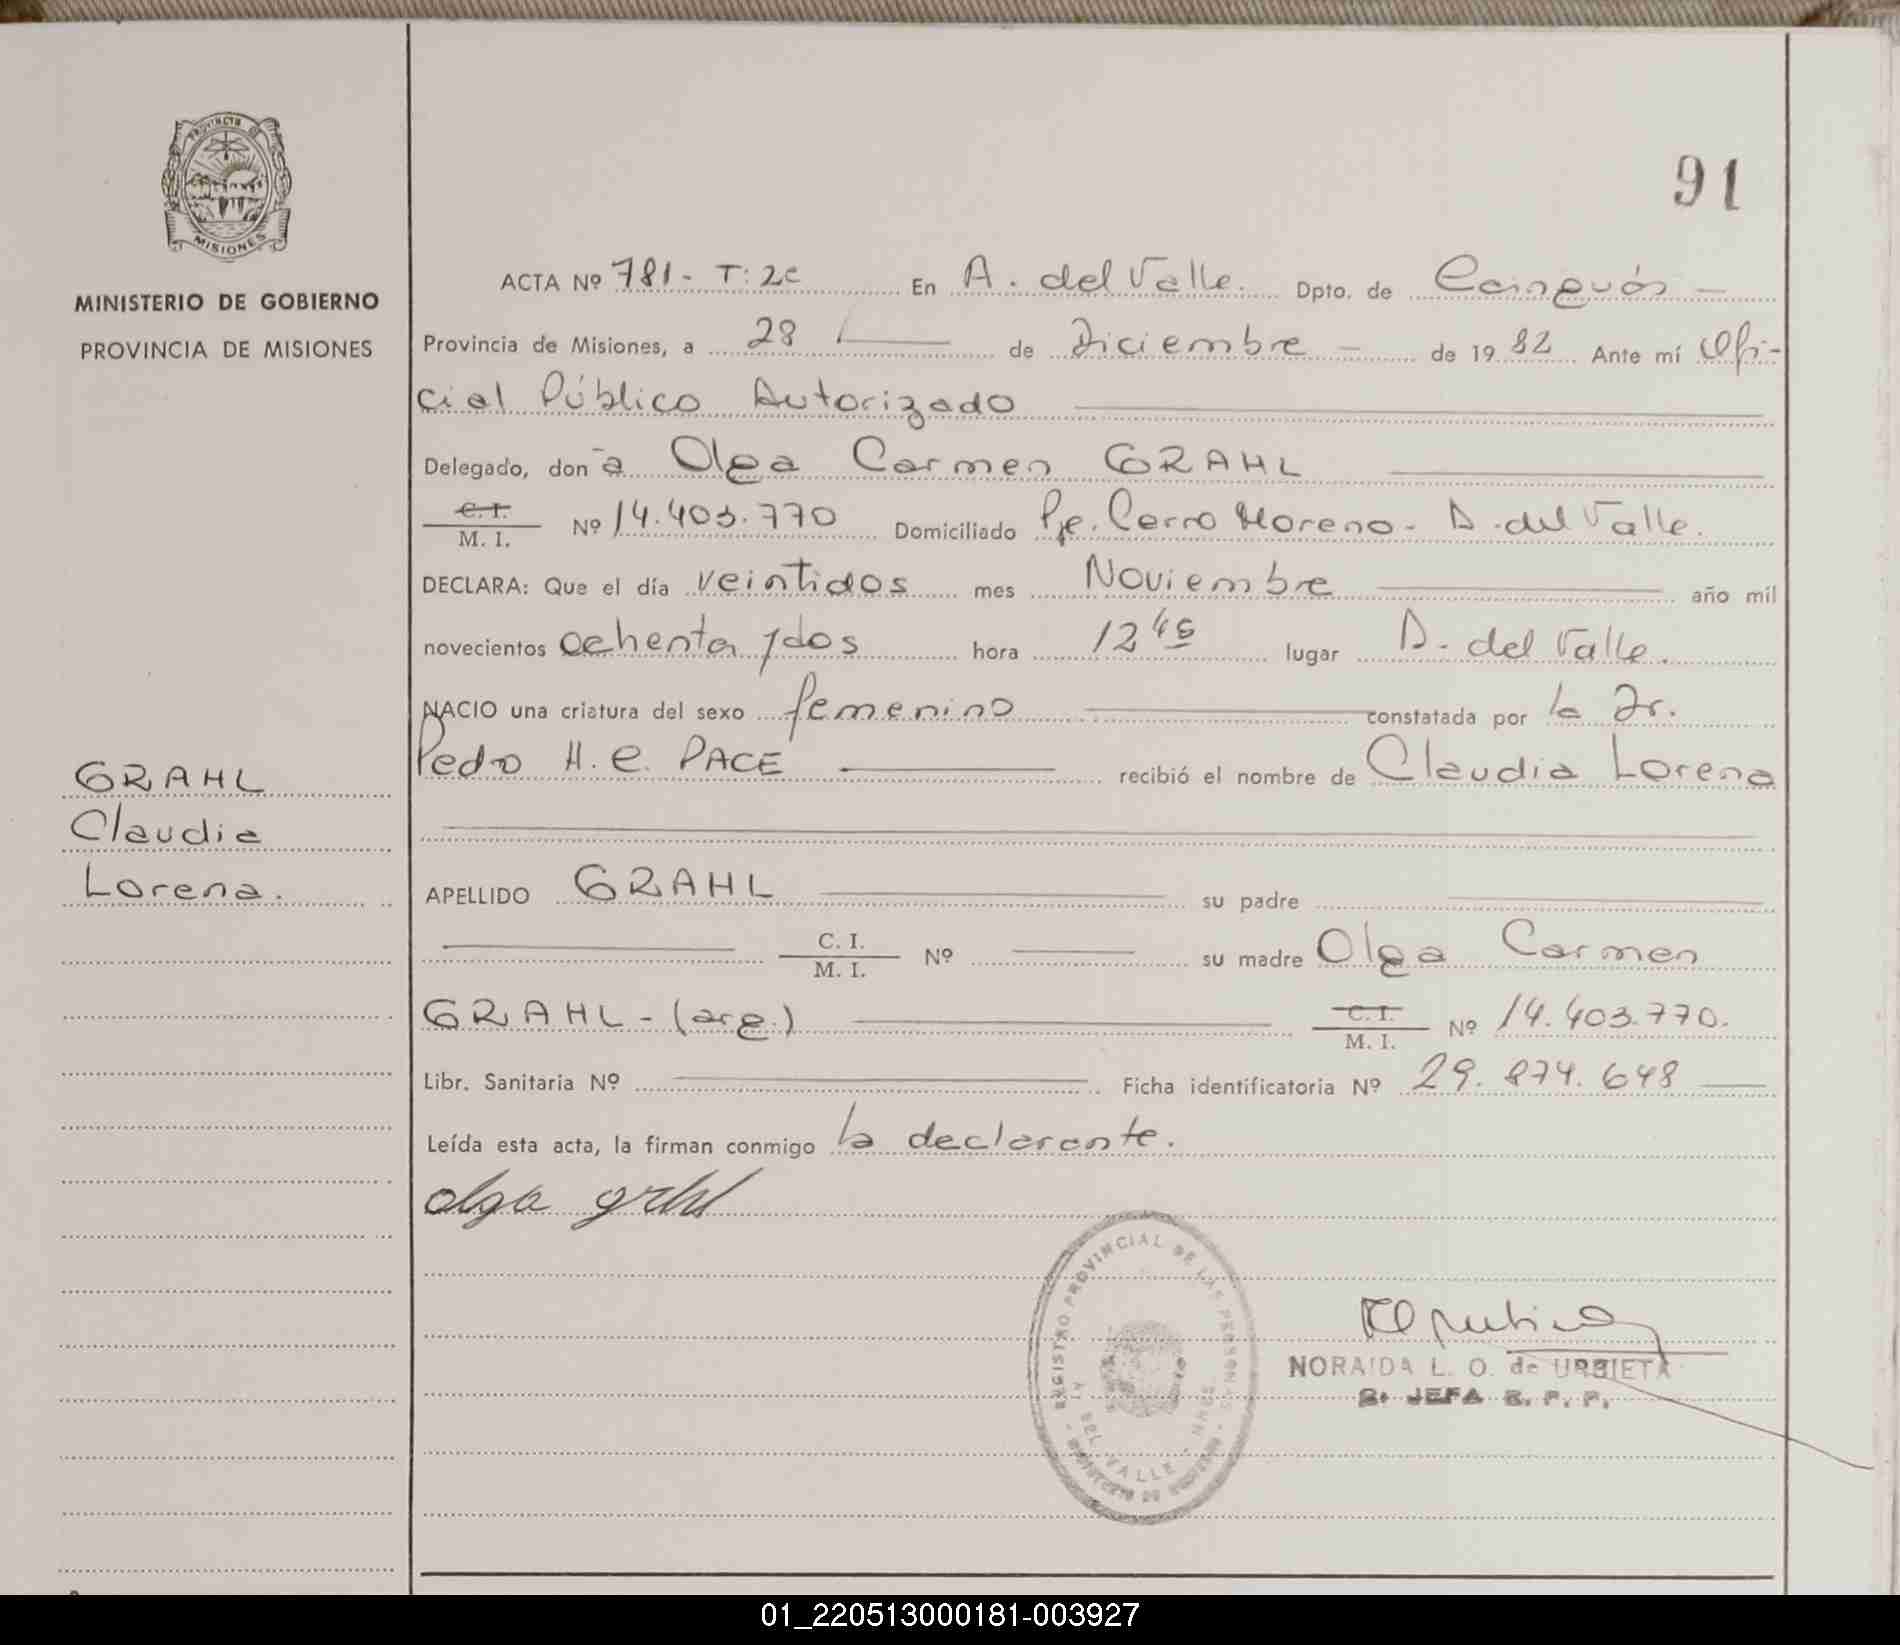 91
PROVINCIA DE
MISIONES
MINISTERIO DE GOBIERNO
PROVINCIA DE MISIONES
GRAHL
Claudia
Lorena.
ACTA Nº 781- T: 2º En A. del Valle. Dpto. de Cainguás -
Provincia de Misiones, a 28 de Diciembre - de 1982 Ante mí Ofi-
cial Público Autorizado
Delegado, don a Olga Carmen GRAHL
C. I. / M. I. Nº 14.403.770 Domiciliado Pje. Cerro Moreno - A. del Valle.
DECLARA: Que el día veintidos mes Noviembre año mil
novecientos ochenta y dos hora 12 45 lugar A. del Valle.
NACIO una criatura del sexo femenino constatada por la Dr.
Pedro H. C. PACE recibió el nombre de Claudia Lorena
APELLIDO GRAHL su padre
C. I. / M. I. Nº su madre Olga Carmen
GRAHL - (arg.) C. I. / M. I. Nº 14.403.770.
Libr. Sanitaria Nº Ficha identificatoria Nº 29.874.648
Leída esta acta, la firman conmigo la declarante.
olga grhl
REGISTRO PROVINCIAL DE LAS PERSONAS
DEL VALLE - MNES
MINISTERIO DE GOBIERNO
NORAIDA L. O. de URBIETA
JEFA R. P. P.
01_220513000181-003927